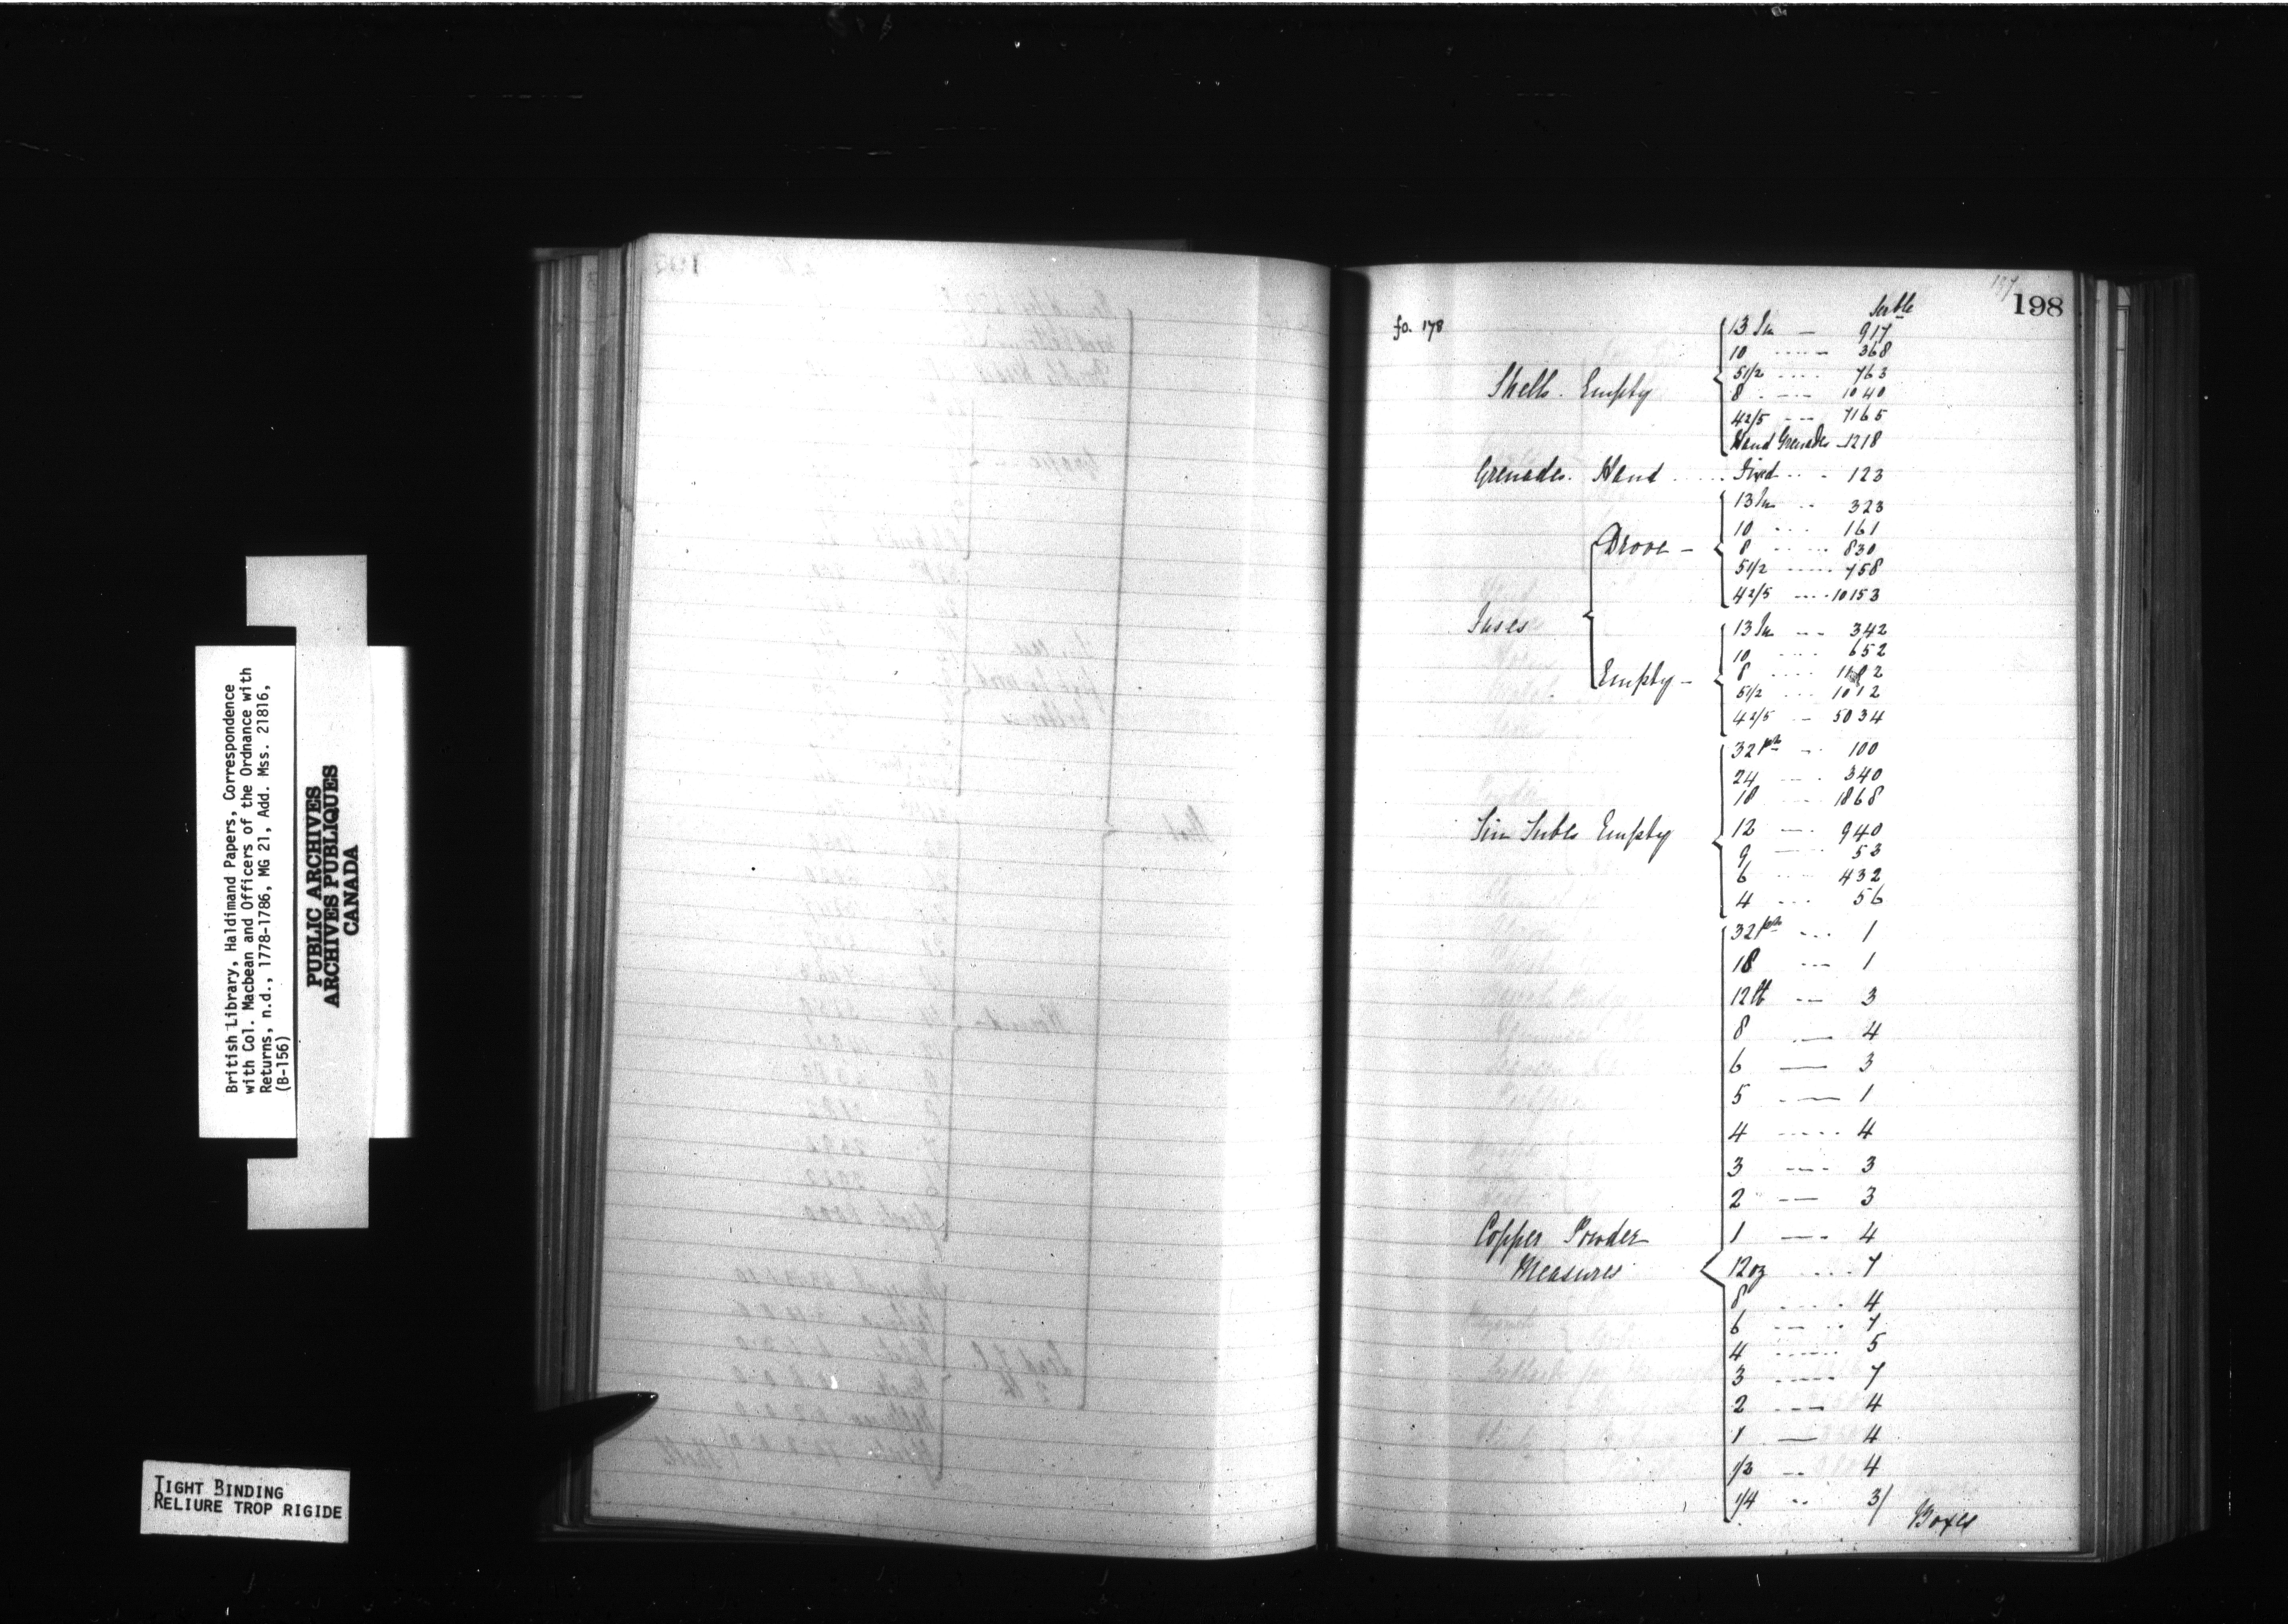 British Library, Haldimand Papers, Correspondence
with Col. Macbean and Officers of the Ordnance with
Returns, n.d., 1778-1786, MG 21, Add. Mss. 21816,
(B-156)
PUBLIC ARCHIVES
ARCHIVES PUBLIQUES
CANADA
TIGHT BINDING
RELIURE TROP RIGIDE
197
198
fo. 178
Serble
13 In — 917
10 .... 368
5 1/2 .... 763
Shells. Empty 8 .... 1040
4 2/5 ... 7165
Hand Grenades - 1218
Grenades. Hand .... Fixed ... 123
13 In .. 323
10 .... 161
Drove — 8 .... 830
5 1/2 .... 758
4 2/5 .... 10153
Fuses
13 In ... 342
10 .... 652
Empty — 8 ....
5 1/2 ... 1012
4 2/5 — 5034
32 pdr — 100
24 .... 340
18 .... 1868
Tin Tubes Empty 12 .... 940
9 .... 53
6 .... 432
4 ... 56
32 pdr ... 1
18 ... 1
12 lb ... 3
8 — 4
6 — 3
5 — 1
4 .... 4
3 ... 3
2 — 3
Copper Powder 1 — 4
Measures 12 oz .... 7
8 .... 4
6 — .. 7
4 .... 5
3 .... 7
2 .... 4
1 — 4
1/2 .. 4
1/4 .. 3/
Boxes